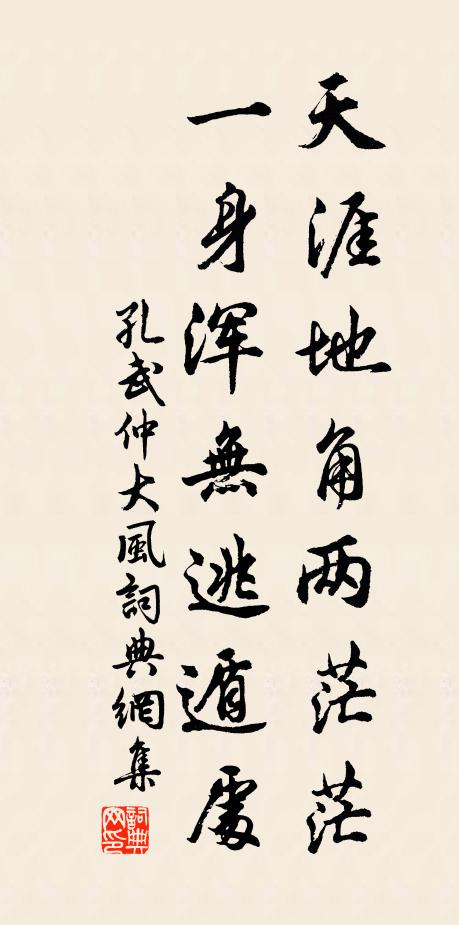 天涯地角两茫茫
一身浑無逃遁處
孔武仲大風詞典網集
詞典网印